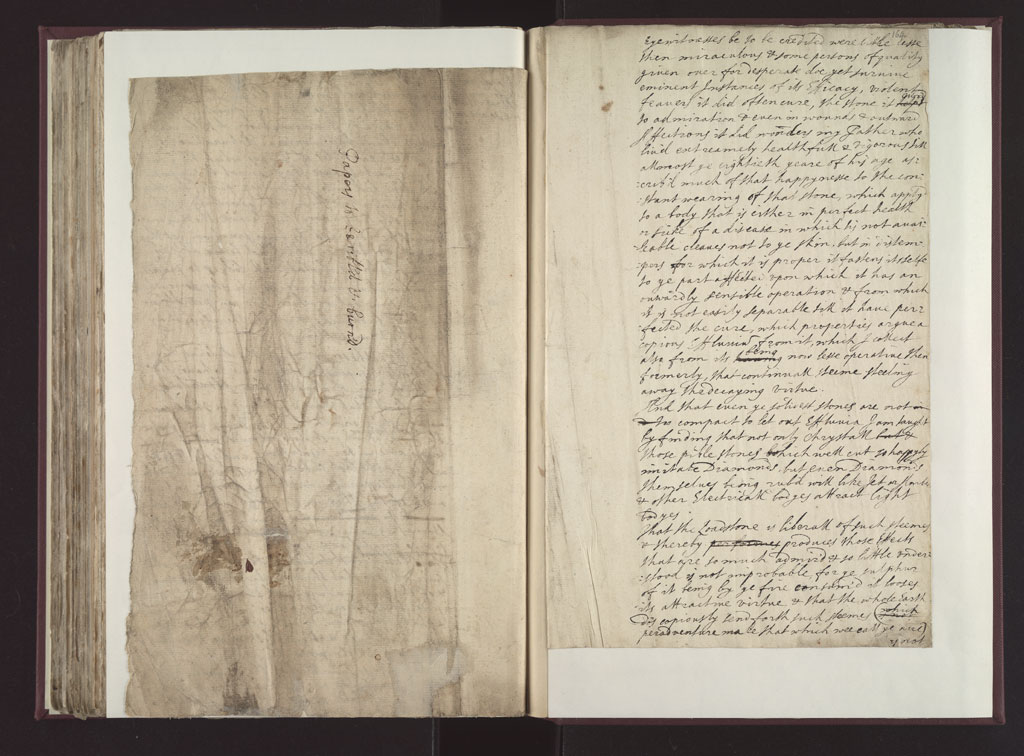 Papers to be resold or burnd.
Eyewitnesses be to be credited were little lesse
then miraculous & some persons of quality
given over for desperate doe yet survive
eminent Instances of its Efficacy, violent
feavers it did often cure, the stone it
to admiration & even in wounds & outward
Affections it did wonders my Father who
liv'd extreamely healthfull & vigorous till
allmost ye eightieth yeare of his age as:
:crib'd much of that happynesse to the con:
:stant wearing of that stone, which apply'd
to a body that is either in perfect health
or sicke of a disease in which tis not avai:
:leable cleaves not to ye skin, but in distem:
:pers for which it is proper it fastens it selfe
to ye part affected upon which it has an
outwardly sensible operation & from which
it is not easily separable till it have per:
:fected the cure, which properties argue a
copious Effluvium from it, which I collect
also from its being now lesse operative then
formerly, that continuall steeme steeling
away the decaying virtue.
And that even ye solidest stones are not
too compact to let out Effluvia I am taught
by finding that not only Chrystall
those pible stones which well cut so happyly
imitate Diamonds, but even Diamonds
themselves being rub'd will like Jet or Amber
& other Electricall bodyes attract light
bodyes.
That the Loadstone is liberall of such steemes
& thereby produces those effects
that are so much admir'd & so little under:
:stood is not improbable, for ye sulphur
of it being by ye fire consum'd it looses
its attractive virtue & that the whole Earth
dos copiously send forth such steemes which
peradventure make that which wee call ye